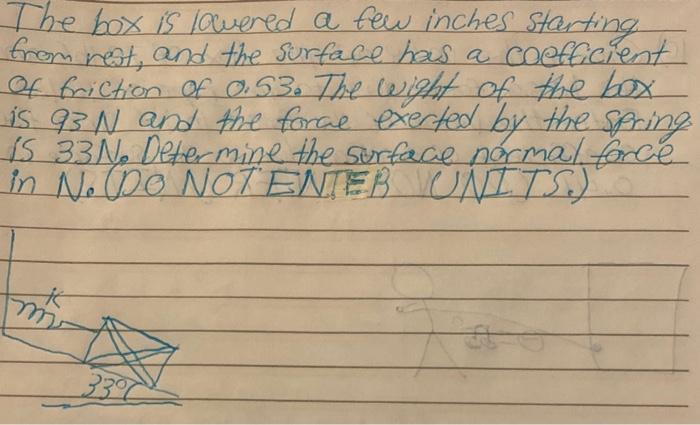 The box is lowered a few inches starting
from rest, and the surface has a coefficient
of friction of 0.53. The wight of the box
is 93 N and the force exerted by the spring
is 33N. Determine the surface normal force
in N. (DO NOT ENTER UNITS.)
K
33°